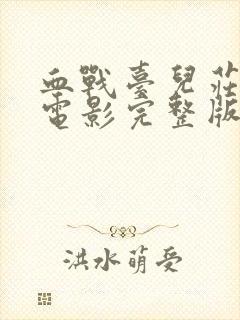 血戰臺兒莊
電影完整版
洪水萌受